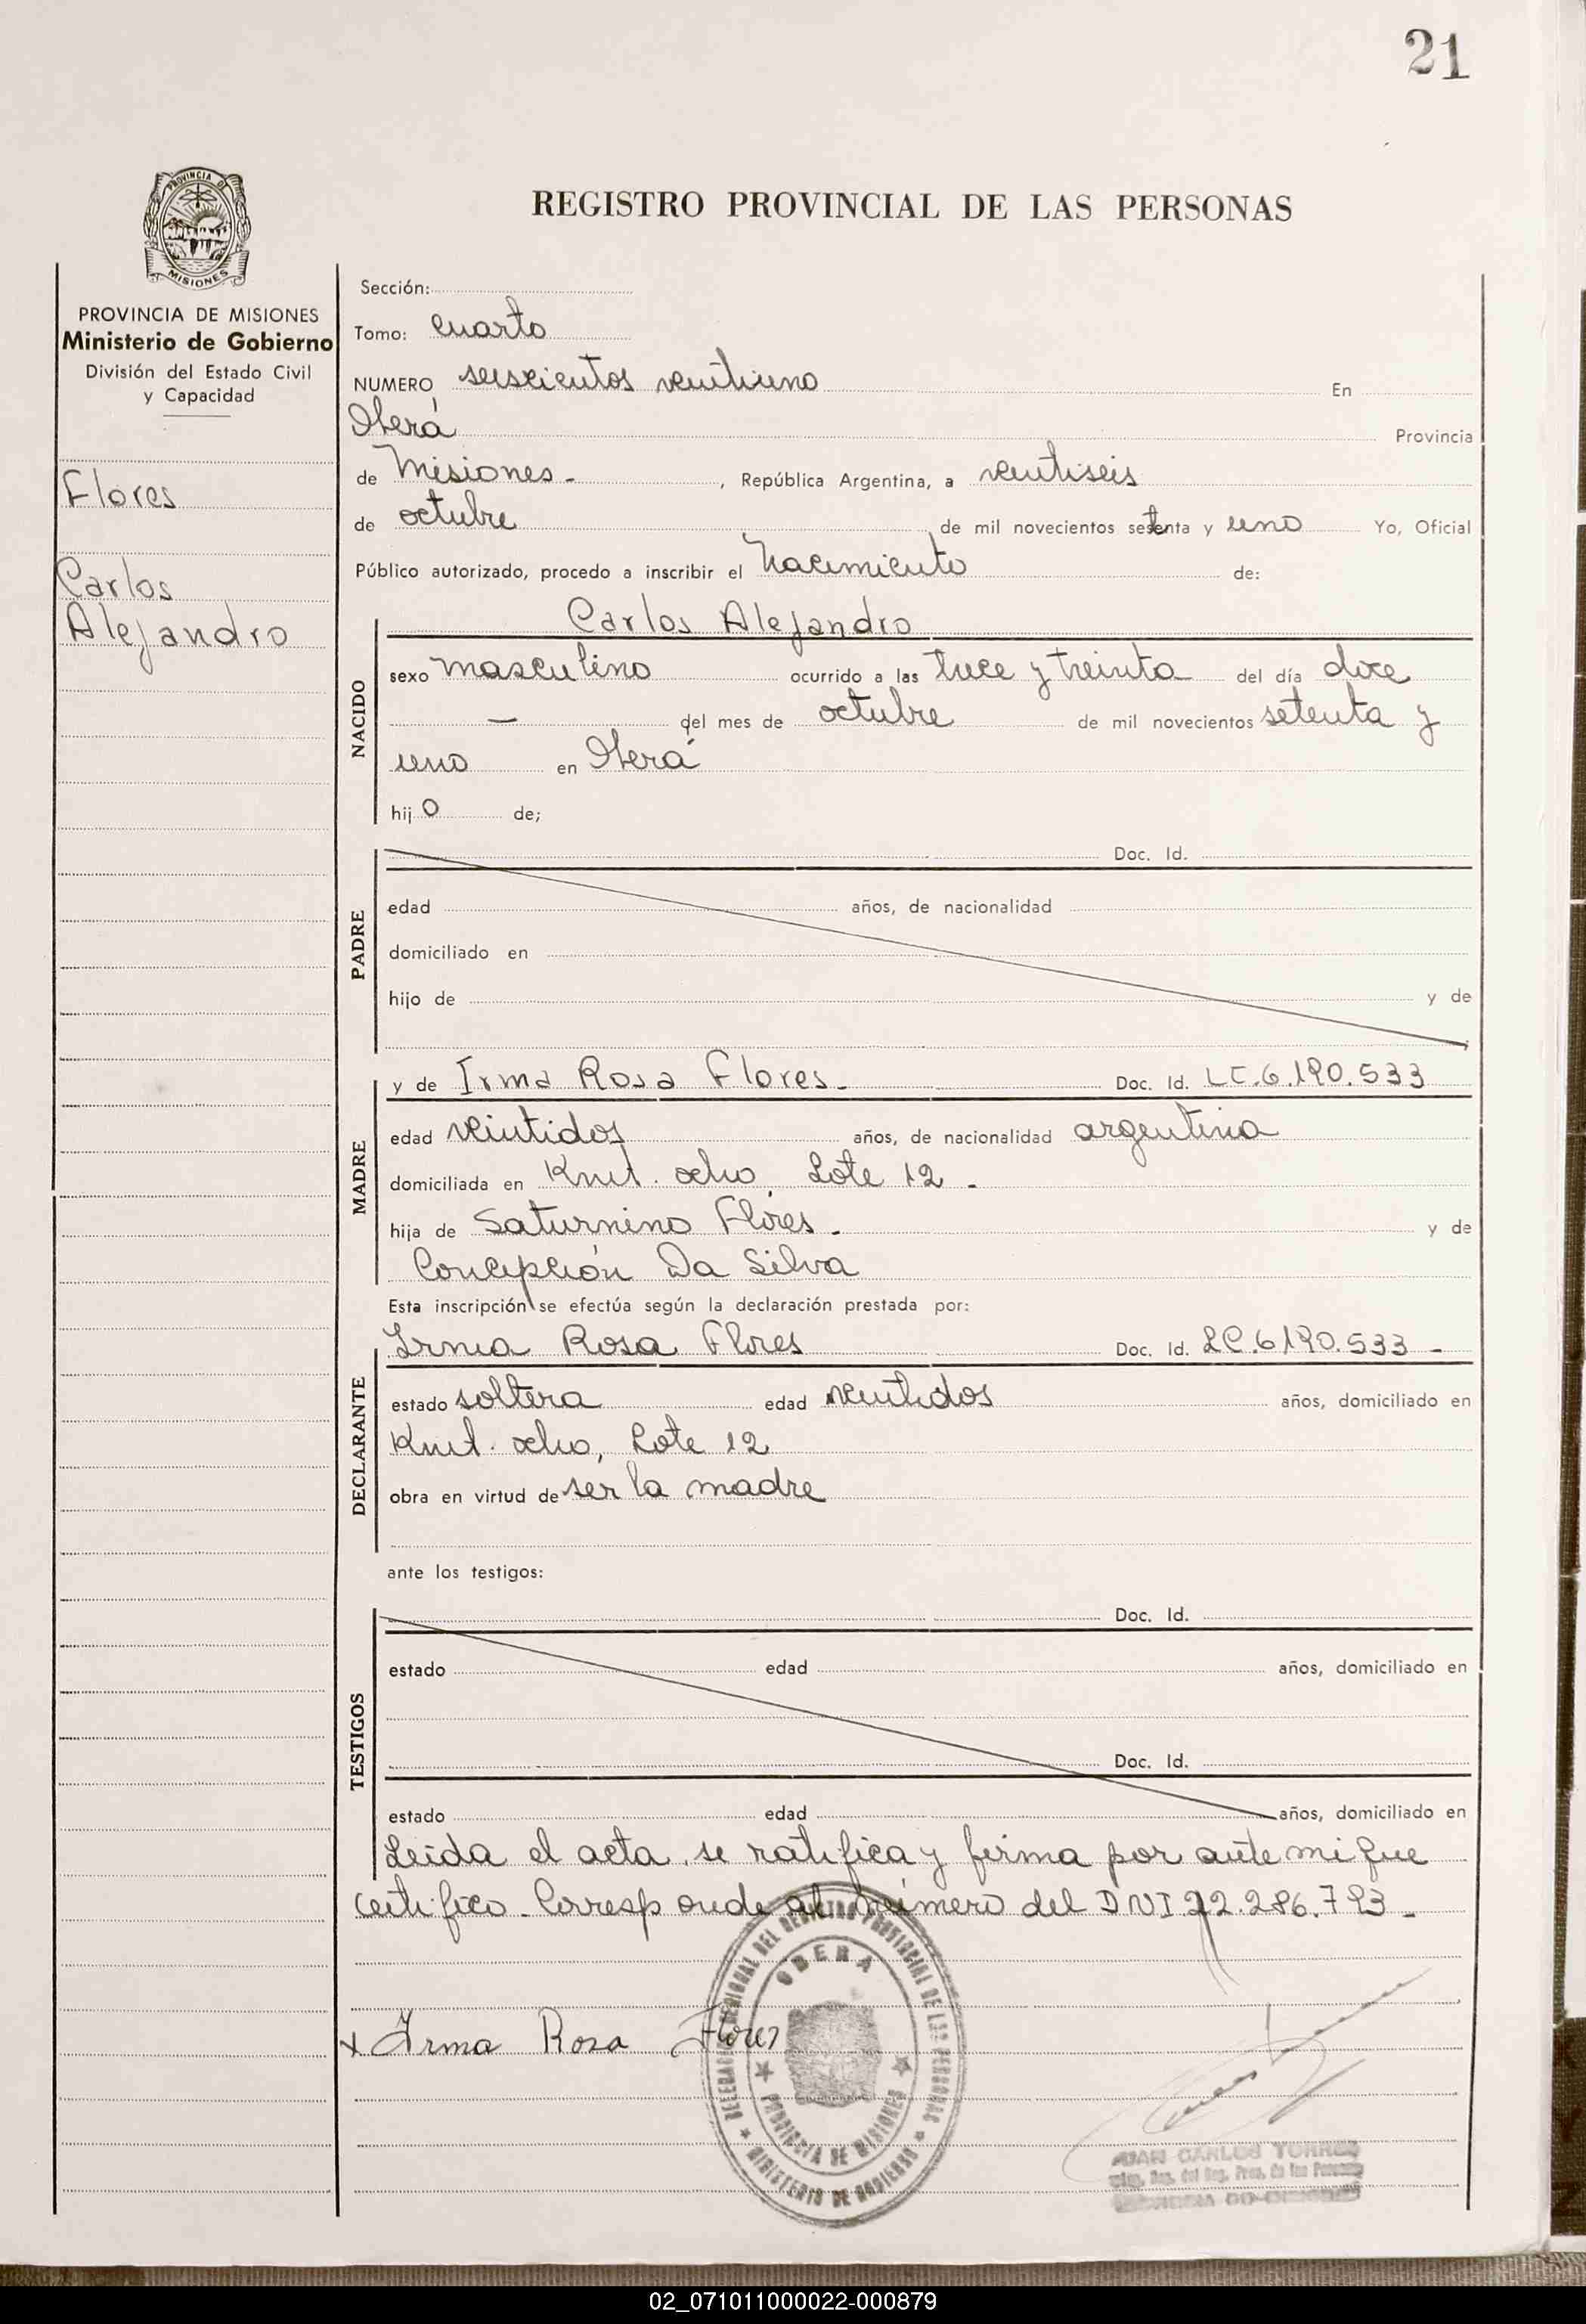 21
REGISTRO PROVINCIAL DE LAS PERSONAS
PROVINCIA DE MISIONES
PROVINCIA DE MISIONES
Ministerio de Gobierno
División del Estado Civil
y Capacidad
Flores
Carlos
Alejandro
Sección:
Tomo: cuarto
NUMERO seiscientos veintiuno En
Oberá Provincia
de Misiones - , República Argentina, a veintiseis
de octubre de mil novecientos setenta y uno Yo, Oficial
Público autorizado, procedo a inscribir el nacimiento de:
NACIDO
Carlos Alejandro
sexo masculino ocurrido a las trece y treinta del día doce
— del mes de octubre de mil novecientos setenta y
uno en Oberá
hijo de;
PADRE
Doc. Id.
edad años, de nacionalidad
domiciliado en
hijo de y de
MADRE
y de Irma Rosa Flores - Doc. Id. LC. 6.190.533
edad veintidos años, de nacionalidad argentina
domiciliada en Kmt. ocho, Lote 12 -
hija de Saturnino Flores - y de
Concepción Da Silva
Esta inscripción se efectúa según la declaración prestada por:
DECLARANTE
Irma Rosa Flores Doc. Id. LC. 6190.533 -
estado soltera edad veintidos años, domiciliado en
Kmt. ocho, Lote 12
obra en virtud de ser la madre
ante los testigos:
TESTIGOS
Doc. Id.
estado edad años, domiciliado en
Doc. Id.
estado edad años, domiciliado en
Leida el acta, se ratifica y firma por ante mi que
certifico - Corresponde al número del DNI 22.286.793 -
x Irma Rosa Flores
DELEGACION REGIONAL DEL REGISTRO PROVINCIAL DE LAS PERSONAS
MINISTERIO DE GOBIERNO
OBERA
PROVINCIA DE MISIONES
JUAN CARLOS TORRES
02_071011000022-000879